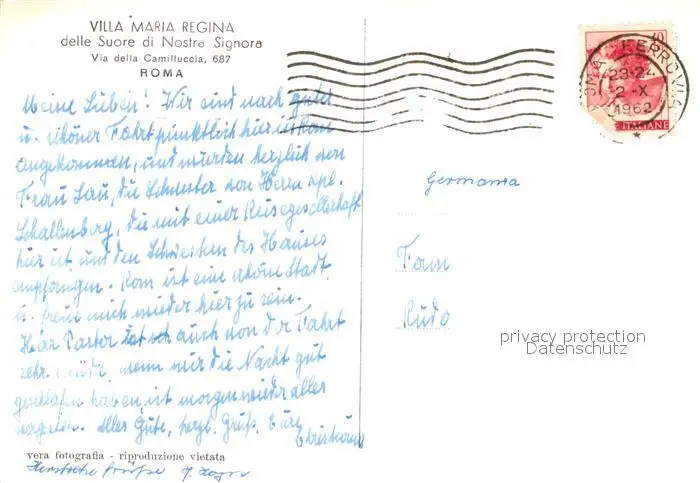 VILLA MARIA REGINA
delle Suore di Nostra Signora
Via della Camilluccia, 687
ROMA
Meine Lieben! Wir sind nach guter
u. schöner Fahrt pünktlich hier in Rom
angekommen, und wurden herzlich von
Frau, die Schwester von Herrn
Schallenberg, die mit einer Reisegesellschaft
hier ist und den Schwestern des Hauses
empfangen. Rom ist eine schöne Stadt
u. freut mich wieder hier zu sein.
Herr Pastor ist auch von der Fahrt
sehr müde, wenn wir die Nacht gut
geschlafen haben, ist morgen wieder alles
vergessen. Alles Gute, herzl. Grüß. Eure
vera fotografia - riproduzione vietata
Herzliche Grüße
10
ROMA FERROVIA
23-24
2-X
1962
ITALIANE
Germania
Fam
Rudo
privacy protection
Datenschutz